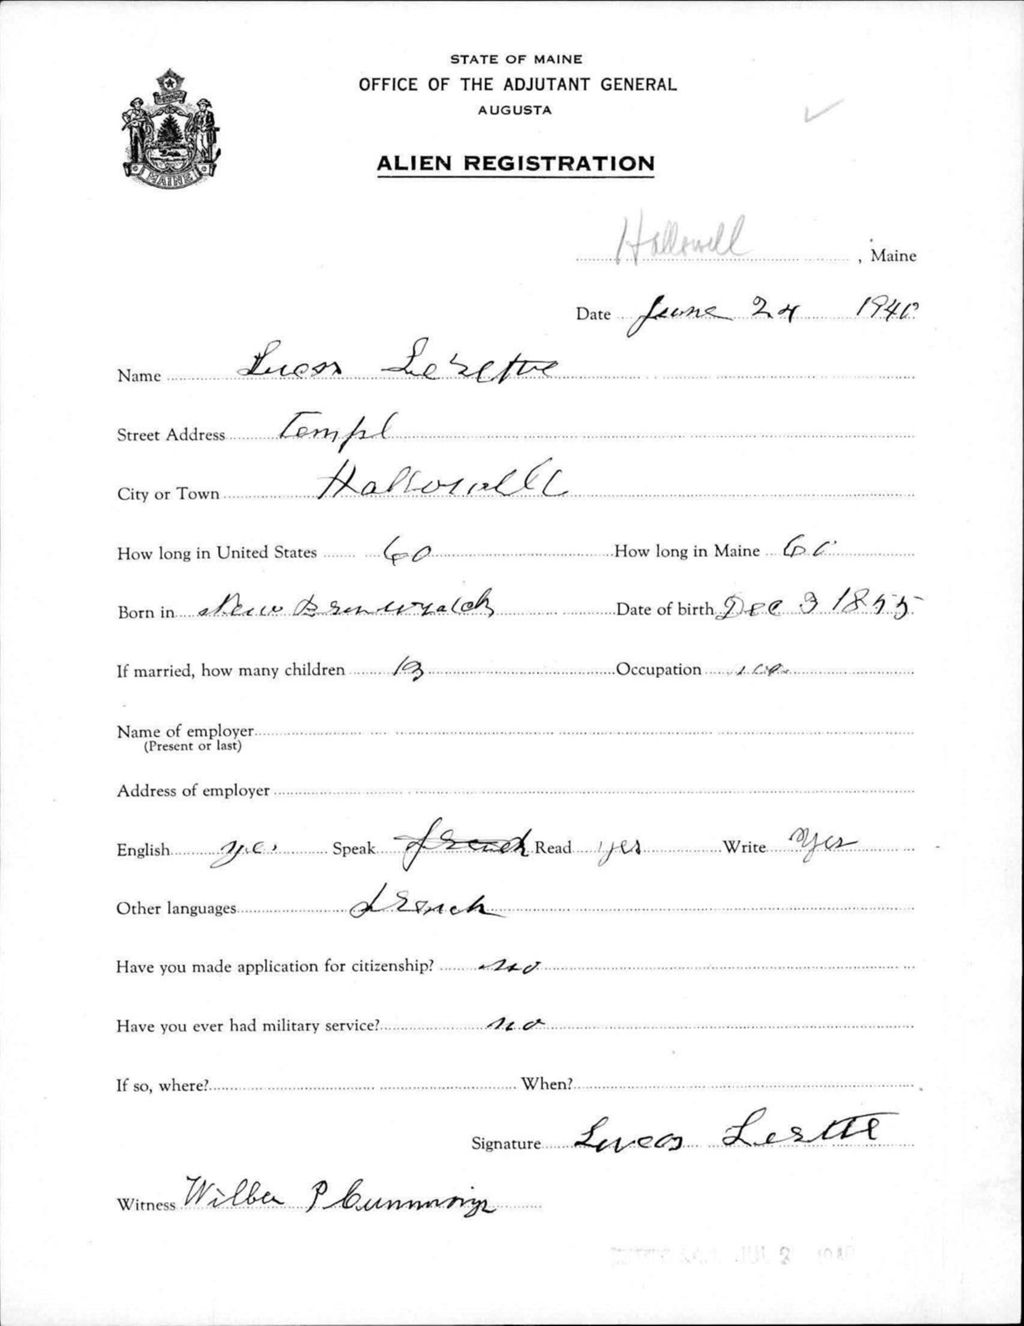 STATE OF MAINE
OFFICE OF THE ADJUTANT GENERAL
AUGUSTA
MAINE
ALIEN REGISTRATION
Hallowell, Maine
Date June 24 1940
Name Lucas
Street Address Templ
City or Town Hallowell
How long in United States 60 How long in Maine 60
Born in New Brunswick Date of birth Dec 3 1855
If married, how many children 13 Occupation
Name of employer
(Present or last)
Address of employer
English yes Speak French Read yes Write Yes
Other languages French
Have you made application for citizenship? no
Have you ever had military service? no
If so, where? When?
Signature Lucas
Witness P Cummings